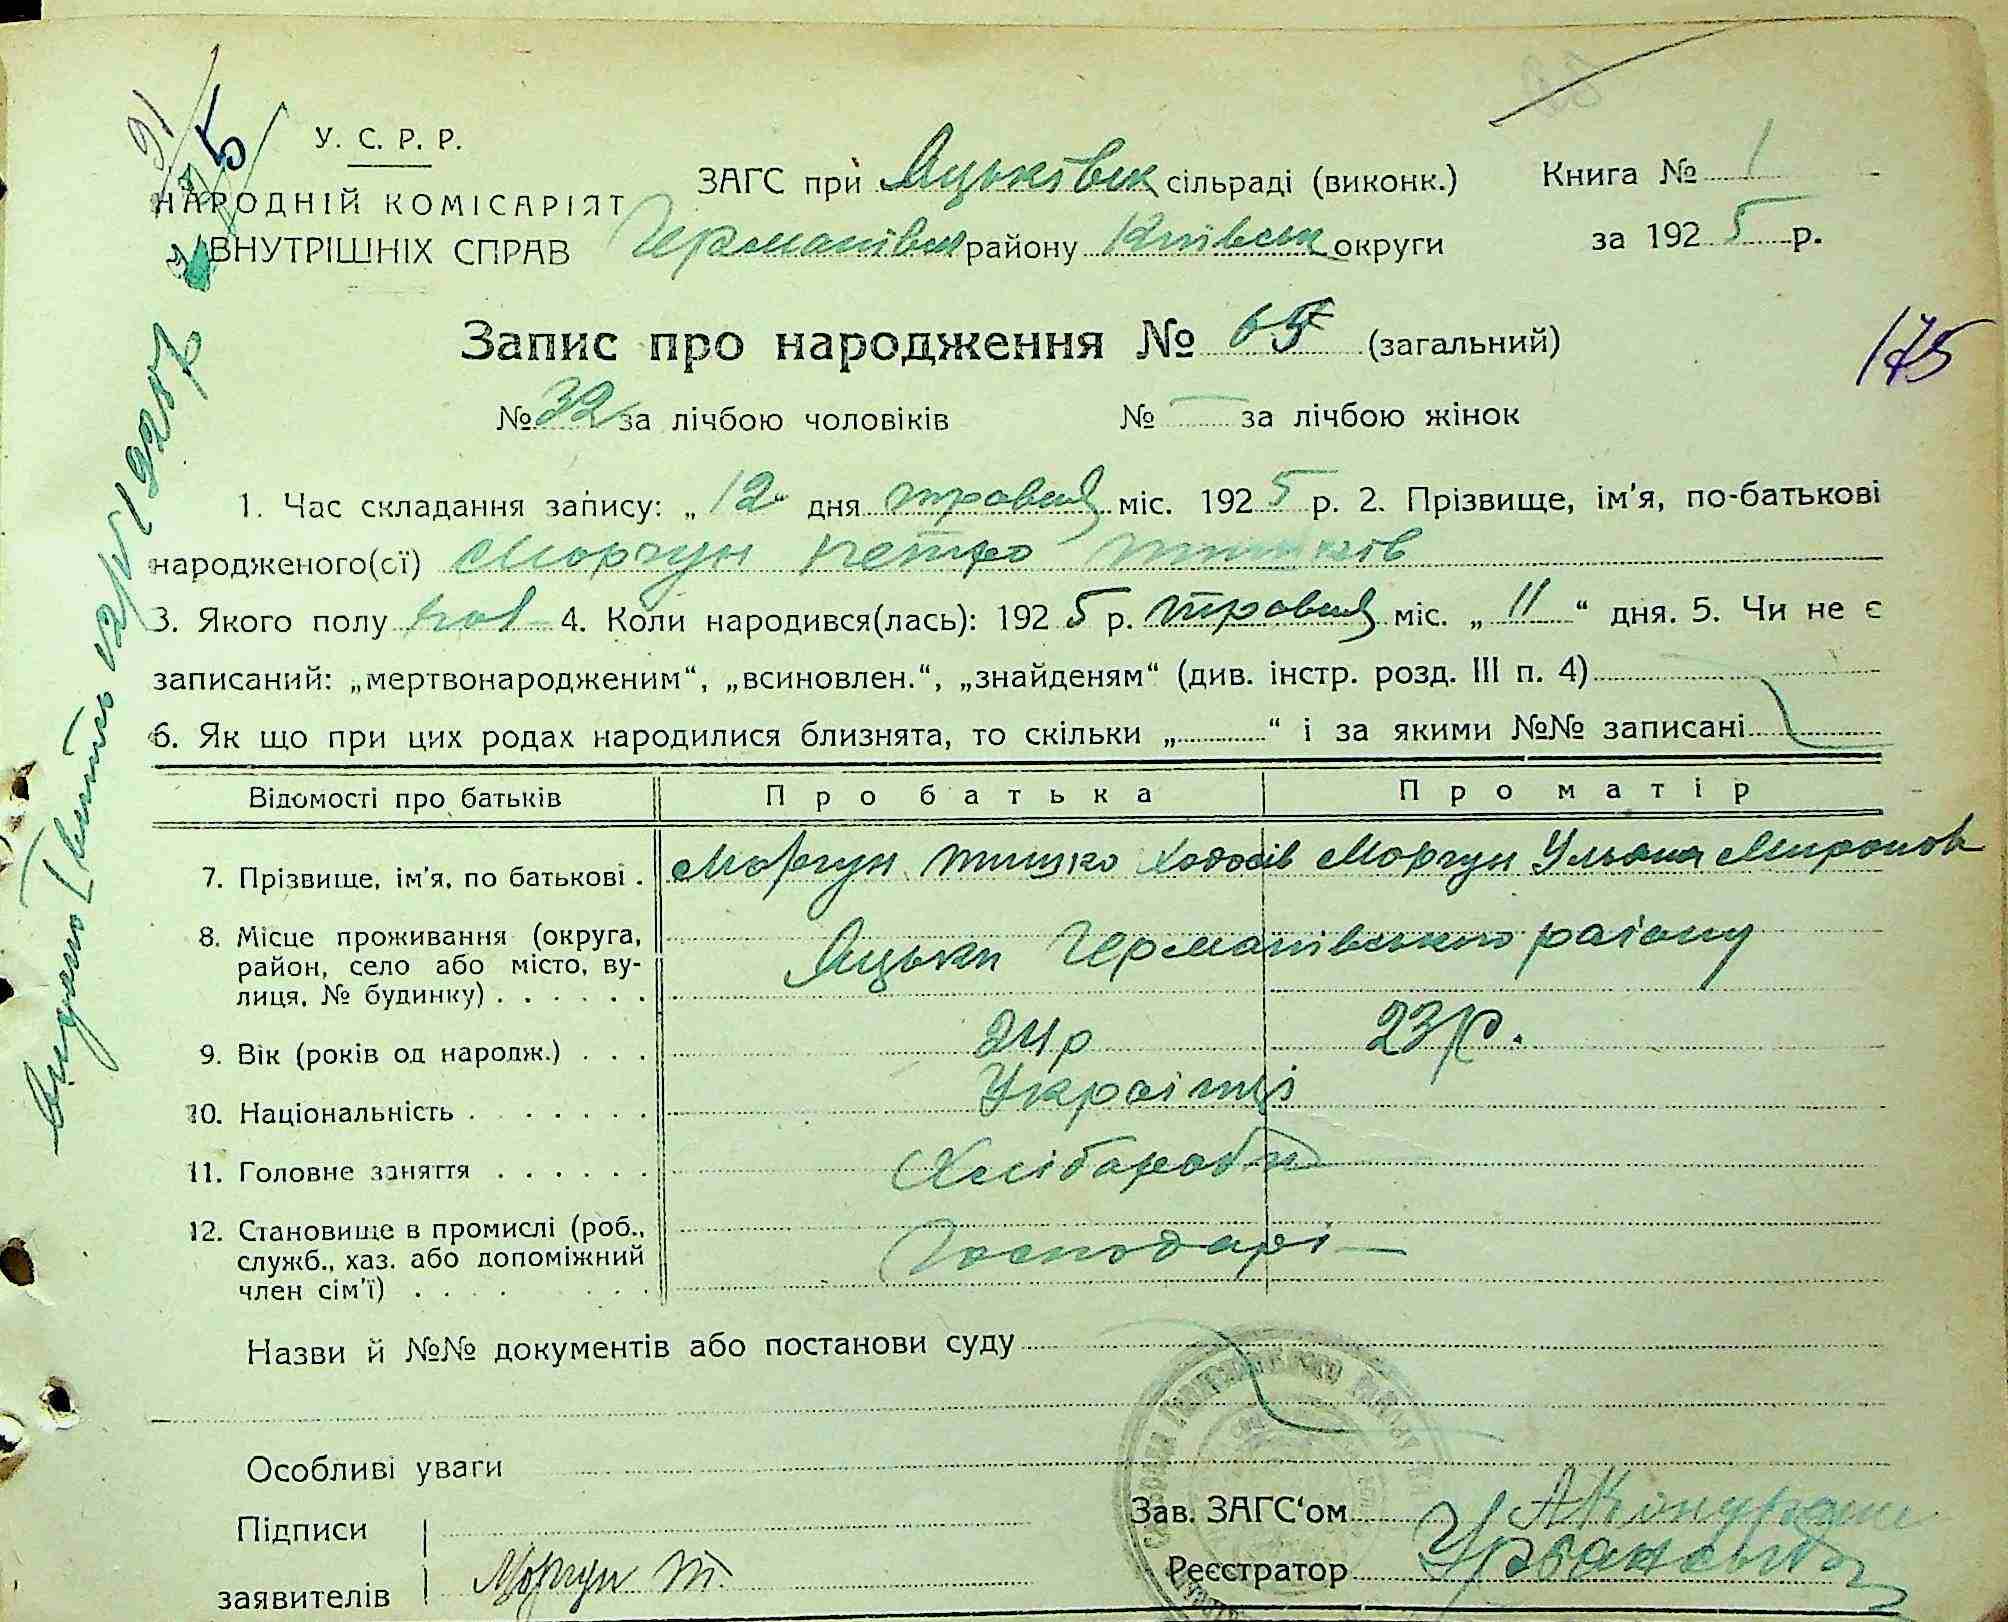 175
У. С. Р. Р.
НАРОДНІЙ КОМІСАРІЯТ
ВНУТРІШНІХ СПРАВ
ЗАГС при Яцьківск сільраді (виконк.)
Германівск району Київськ округи
Книга № 1
за 1925 р.
Запис про народження № 65 (загальний)
№ 32 за лічбою чоловіків № — за лічбою жінок
1. Час складання запису: „12“ дня травня міс. 1925 р. 2. Прізвище, ім'я, по-батькові
народженого(ої) Моргун Петро Тишков
3. Якого полу чол 4. Коли народився(лась): 1925 р. травня міс. „11“ дня. 5. Чи не є
записаний: „мертвонародженим“, „всиновлен.“, „знайденям“ (див. інстр. розд. III п. 4)
6. Як що при цих родах народилися близнята, то скільки „ “ і за якими №№ записані
Відомості про батьків Про батька Про матір
7. Прізвище, ім'я, по батькові . Моргун Тишко Ходосів Моргун Уляна Миронов
8. Місце проживання (округа,
район, село або місто, ву-
лиця, № будинку) . . . . . .
Яцьки Германівського району
9. Вік (років од народж.) . . . 24 р 23 р.
10. Національність . . . . . . . Українці
11. Головне заняття . . . . . . Хлібароби
12. Становище в промислі (роб.,
служб., хаз. або допоміжний
член сім'ї) . . . . . . . .
Господарі —
Назви й №№ документів або постанови суду
Особливі уваги
Підписи
заявителів
Моргун Т.
Зав. ЗАГС‘ом
Реєстратор